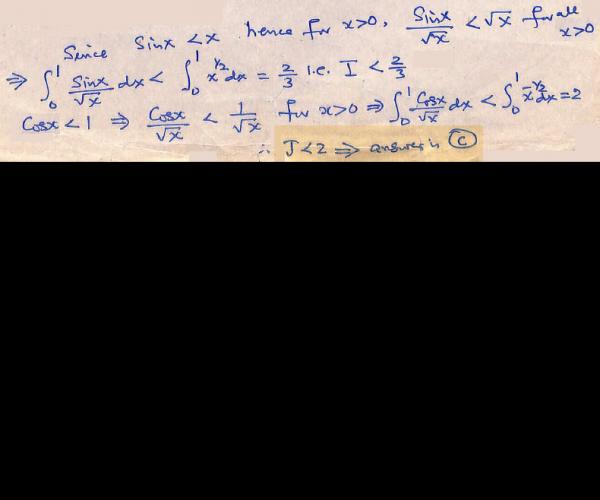 Since Sinx < x hence for x>0, Sinx/√x < √x for all x>0
⇒ ∫₀¹ Sinx/√x dx < ∫₀¹ x^1/2 dx = 2/3 i.e. I < 2/3
Cosx < 1 ⇒ Cosx/√x < 1/√x for x>0 ⇒ ∫₀¹ Cosx/√x dx < ∫₀¹ x^-1/2 dx = 2
∴ J < 2 ⇒ answer is (C)